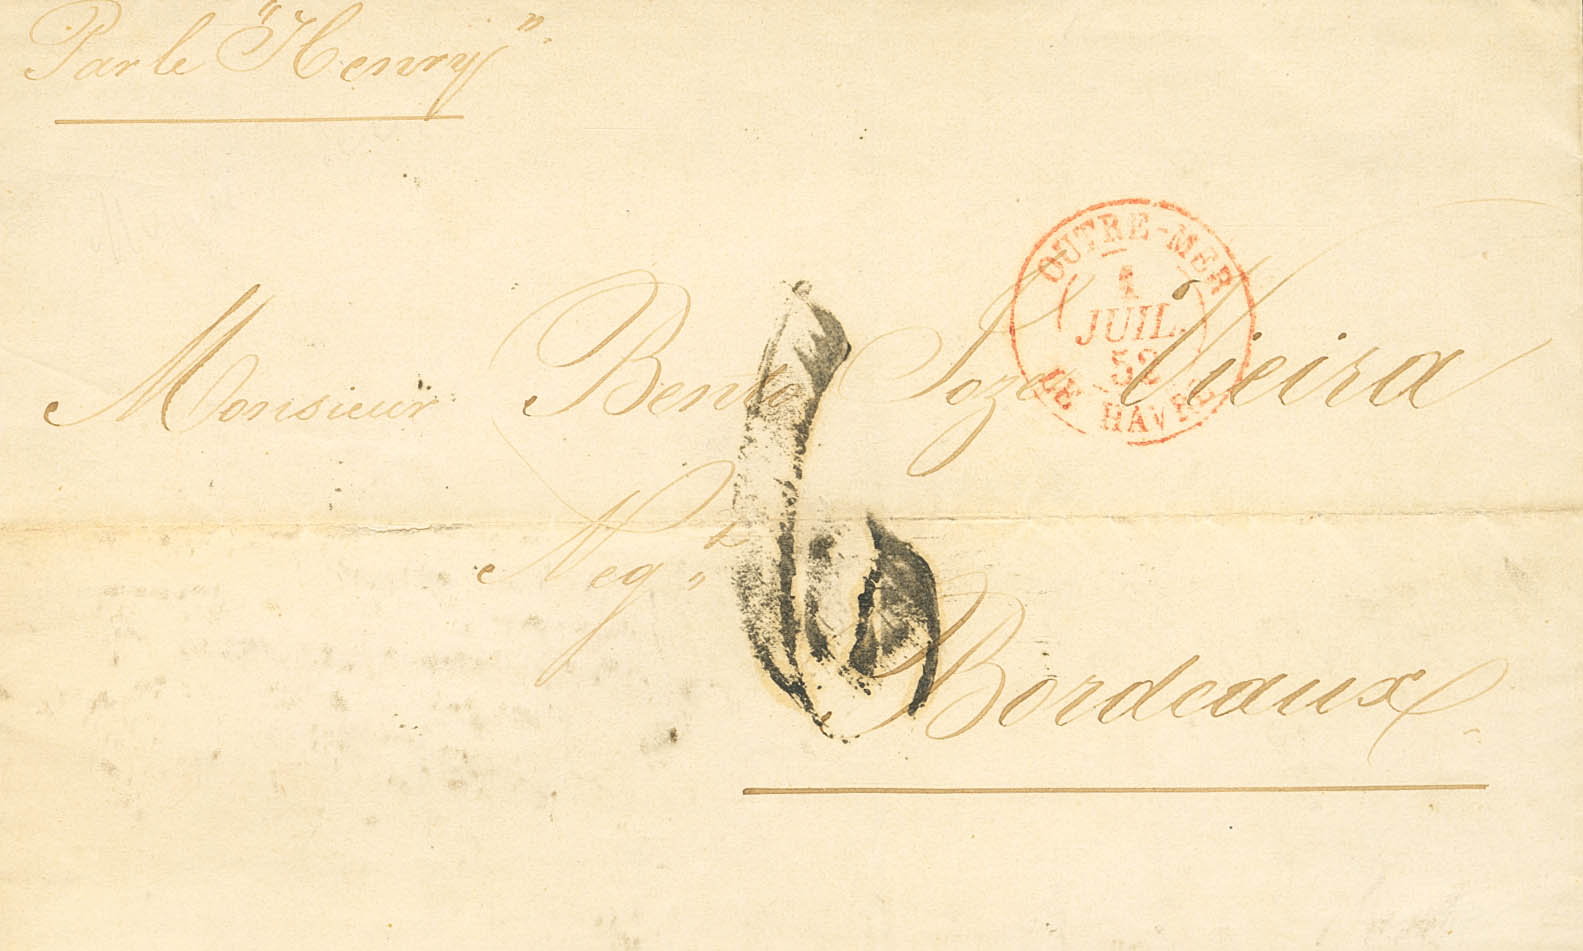 Par le "Henry".
OUTRE-MER
1
JUIL.
52
LE HAVRE
Monsieur Bento Joze Vieira
Neg.t
6
Bordeaux